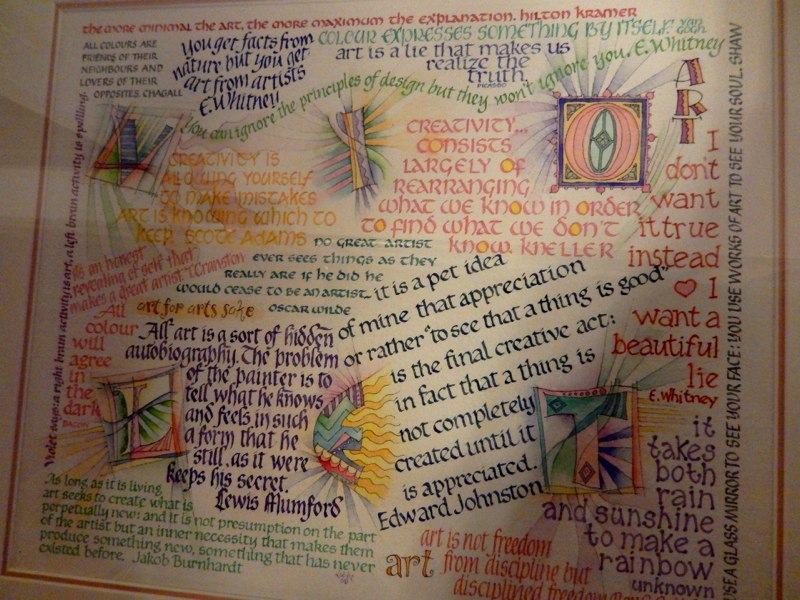 the more minimal the art, the more maximum the explanation. hilton kramer
ALL COLOURS ARE
FRIENDS OF THEIR
NEIGHBOURS AND
LOVERS OF THEIR
OPPOSITES. CHAGALL
you get facts from
nature but you get
art from artists
E.Whitney
COLOUR EXPRESSES SOMETHING BY ITSELF. van gogh
art is a lie that makes us
realize the
truth.
PICASSO
you can ignore the principles of design but they won't ignore you. E.Whitney
ART
I
don't
want
it true
instead
I
want a
beautiful
lie
E.Whitney
CREATIVITY IS
ALLOWING YOURSELF
TO MAKE MISTAKES
ART IS KNOWING WHICH TO
KEEP. SCOTT ADAMS
CREATIVITY...
CONSISTS
LARGELY OF
REARRANGING
WHAT WE KNOW IN ORDER
TO FIND WHAT WE DON'T
KNOW. KNELLER
O
no great artist
ever sees things as they
really are if he did he
would cease to be an artist.
OSCAR WILDE
it's an honest
revealing of self that
makes a great artist. T. Cranston
art for arts sake
All
colour
will
agree
in
the
dark
BACON
All art is a sort of hidden
autobiography. The problem
of the painter is to
tell what he knows
and feels in such
a form that he
still, as it were
keeps his secret.
Lewis Mumford
it is a pet idea
of mine that appreciation
or rather "to see that a thing is good"
is the final creative act:
in fact that a thing is
not completely
created until it
is appreciated.
Edward Johnston
L
T
it
takes
both
rain
and sunshine
to make a
rainbow
unknown
As long as it is living
art seeks to create what is
perpetually new: and it is not presumption on the part
of the artist but an inner necessity that makes them
produce something new, something that has never
existed before. Jakob Burnhardt
art
art is not freedom
from discipline but
disciplined freedom
Violet says: a right brain activity is art, a left brain activity is spelling.
USE A GLASS MIRROR TO SEE YOUR FACE: YOU USE WORKS OF ART TO SEE YOUR SOUL. SHAW